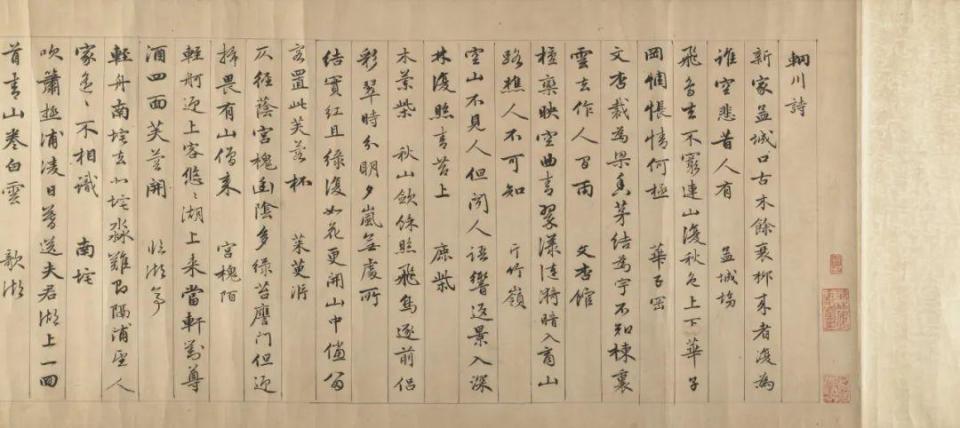 輞川詩
新家孟城口古木餘衰柳来者復為
誰空悲昔人有 孟城坳
飛鳥去不窮連山復秋色上下華子
岡惆悵情何極 華子岡
文杏裁為梁香茅結為宇不知棟裏
雲去作人間雨 文杏館
檀欒映空曲青翠漾漣漪暗入商山
路樵人不可知 斤竹嶺
空山不見人但聞人語響返景入深
林復照青苔上 鹿柴
木蘭柴 秋山斂餘照飛鳥逐前侶
彩翠時分明夕嵐無處所
結實紅且綠復如花更開山中儻留
客置此芙蓉杯 茱萸沜
仄徑蔭宮槐幽陰多綠苔應門但迎
掃畏有山僧来 宮槐陌
輕舸迎上客悠〻湖上来當軒對尊
酒四面芙蓉開 臨湖亭
輕舟南垞去北垞淼難即隔浦望人
家遙〻不相識 南垞
吹簫極浦凌日暮送夫君湖上一回
首青山卷白雲 欹湖